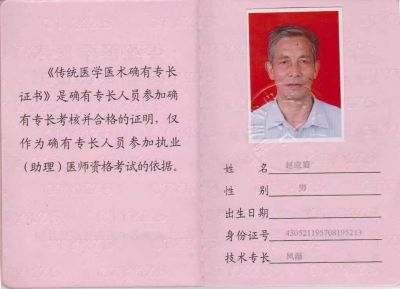 《传统医学医术确有专长
证书》是确有专长人员参加确
有专长考核并合格的证明，仅
作为确有专长人员参加执业
（助理）医师资格考试的依据。
姓 名
性 别 男
出生日期
身份证号 430521195708195213
技术专长 风湿